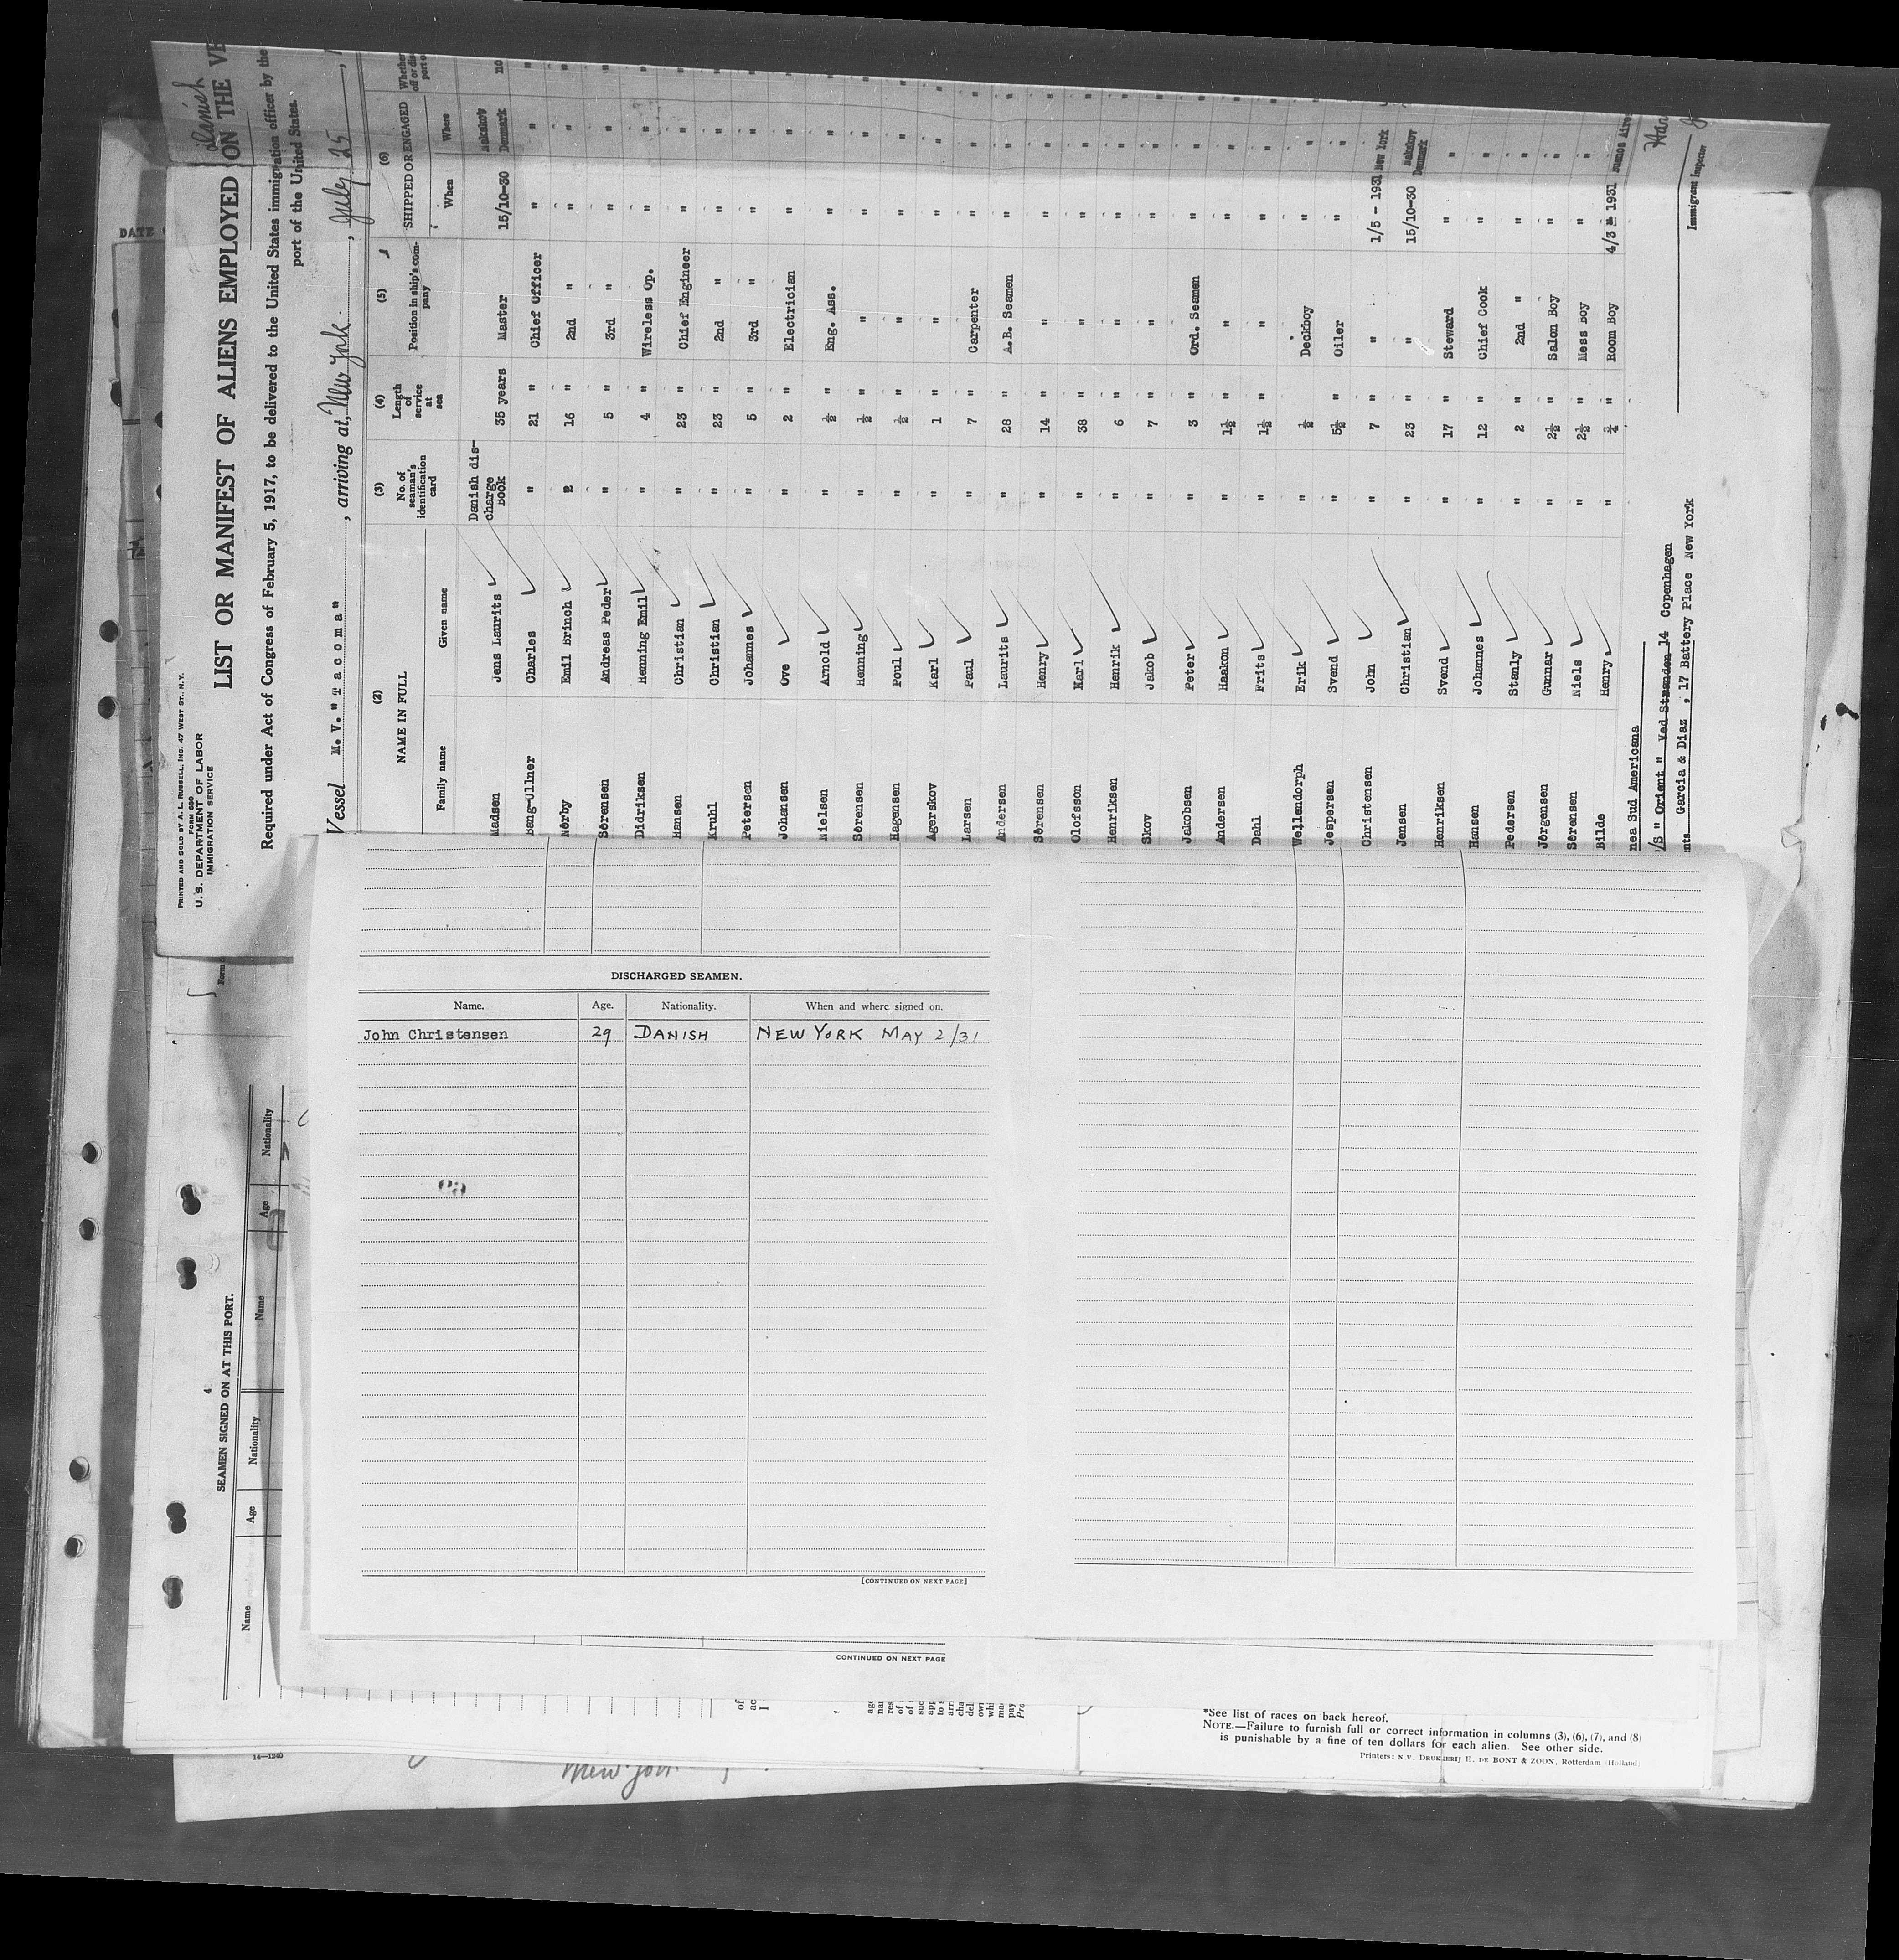 Danish
PRINTED AND SOLD BY A. L. RUSSELL, INC. 47 WEST ST. N.Y.
FORM 680
U. S. DEPARTMENT OF LABOR
IMMIGRATION SERVICE
LIST OR MANIFEST OF ALIENS EMPLOYED ON THE
Required under Act of Congress of February 5, 1917, to be delivered to the United States immigration officer by the
port of the United States.
Vessel M. V. "Tacoma", arriving at, New York, July 25,
(2) (3) (4) (5) (6)
NAME IN FULL No. of seaman's identification card Length of service at sea Position in ship's company SHIPPED OR ENGAGED
Family name Given name When Where
Madsen Jens Laurits Danish discharge Book 35 years Master 15/10-30 Nakskov Denmark no
Bang-Ullner Charles " 21 " Chief Officer " "
Nörby Emil Brinch " 16 " 2nd " " "
Sörensen Andreas Peder " 5 " 3rd " " "
Didriksen Henning Emil " 4 " Wireless Op. " "
Hansen Christian " 23 " Chief Engineer " "
Kruhl Christian " 23 " 2nd " " "
Petersen Johannes " 5 " 3rd " " "
Johansen Ove " 2 " Electrician " "
Nielsen Arnold " ½ " Eng. Ass. " "
Sörensen Henning " ½ " " " "
Hagensen Poul " ½ " " " "
Agerskov Karl " 1 " " " "
Larsen Paul " 7 " Carpenter " "
Andersen Laurits " 28 " A.B. Seamen " "
Sörensen Henry " 14 " " " "
Olofsson Karl " 38 " " " "
Henriksen Henrik " 6 " " " "
Skov Jakob " 7 " " " "
Jakobsen Peter " 3 " Ord. Seamen " "
Andersen Haakon " 1½ " " " "
Dahl Frits " 1½ " " " "
Wellendorph Erik " ½ Deckboy " "
Jespersen Svend " 5½ " Oiler " "
Christensen John " 7 " " 1/5 - 1931 New York
Jensen Christian " 23 " " 15/10-30 Nakskov Denmark
Henriksen Svend " 17 " Steward " "
Hansen Johannes " 12 " Chief Cook " "
Pedersen Stanly " 2 " 2nd " " "
Jörgensen Gunnar " 2½ " Salon Boy " "
Sörensen Niels " 2½ " Mess Boy " "
Bilde Henry " ¾ " Room Boy 4/3 - 1931 Buenos Aires
nea Sud Americana
/S " Orient " Ved Stranden 14 Copenhagen
nts Garcia & Diaz , 17 Battery Place New York
Immigrant Inspector
DISCHARGED SEAMEN.
Name. Age. Nationality. When and where signed on.
John Christensen 29 DANISH NEW YORK MAY 2/31
[CONTINUED ON NEXT PAGE]
CONTINUED ON NEXT PAGE
4
SEAMEN SIGNED ON AT THIS PORT.
Name Age Nationality Name Age Nationality
DATE
14—1240
New York
*See list of races on back hereof.
NOTE.—Failure to furnish full or correct information in columns (3), (6), (7), and (8)
is punishable by a fine of ten dollars for each alien. See other side.
Printers: N.V. DRUKKERIJ E. DE BONT & ZOON, Rotterdam (Holland)